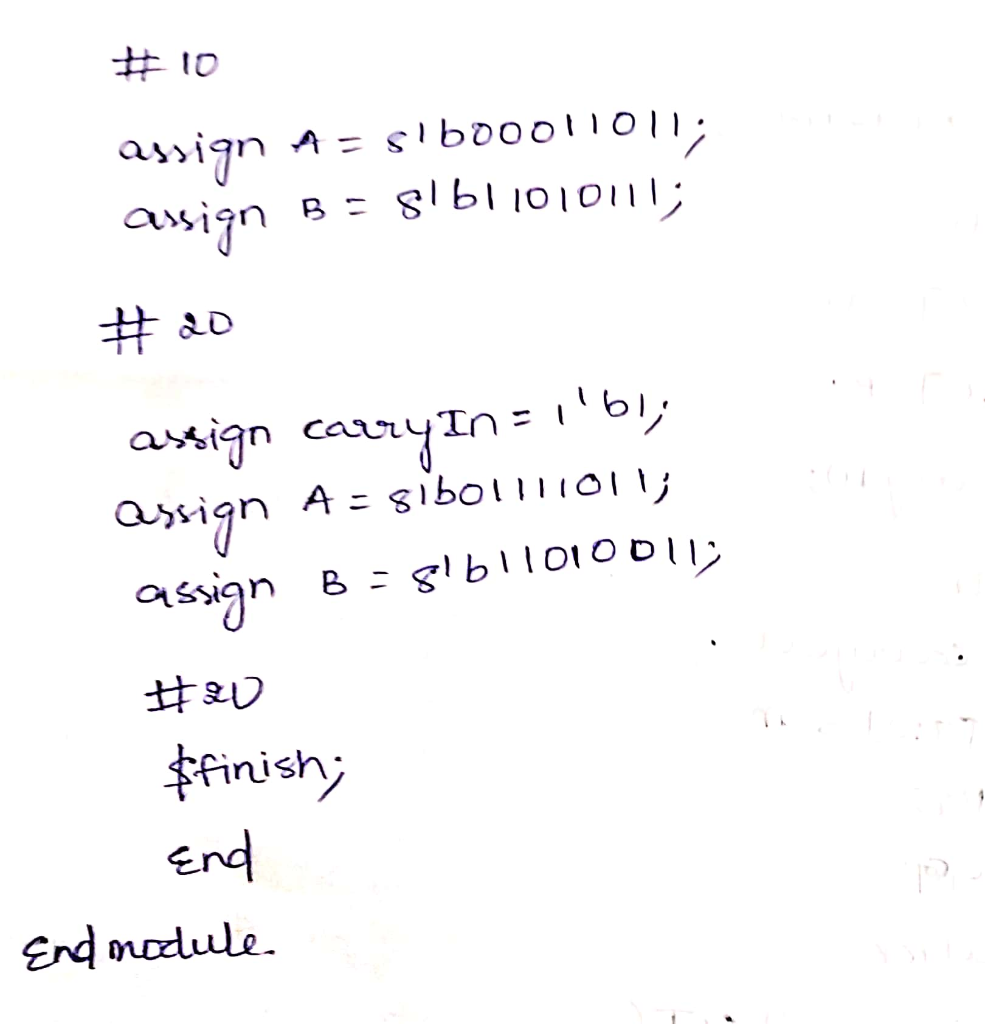 # 10
assign A = 8'b00011011;
assign B = 8'b11010111;
# 20
assign carryIn = 1'b1;
assign A = 8'b01111011;
assign B = 8'b11010011;
#20
$finish;
End
Endmodule.